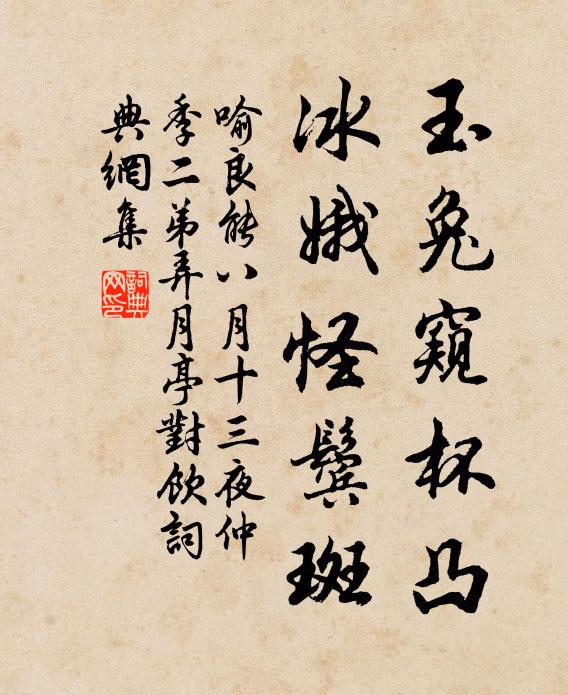 玉兔窺杯凸
冰娥怪鬢斑
喻良能八月十三夜仲
季二弟弄月亭對飲詞
典網集
詞典
网印